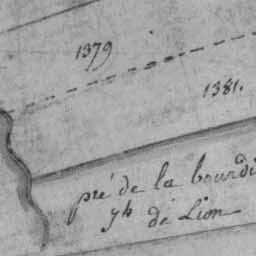 1379
1381.
pré de la bourdi
yh de Lion